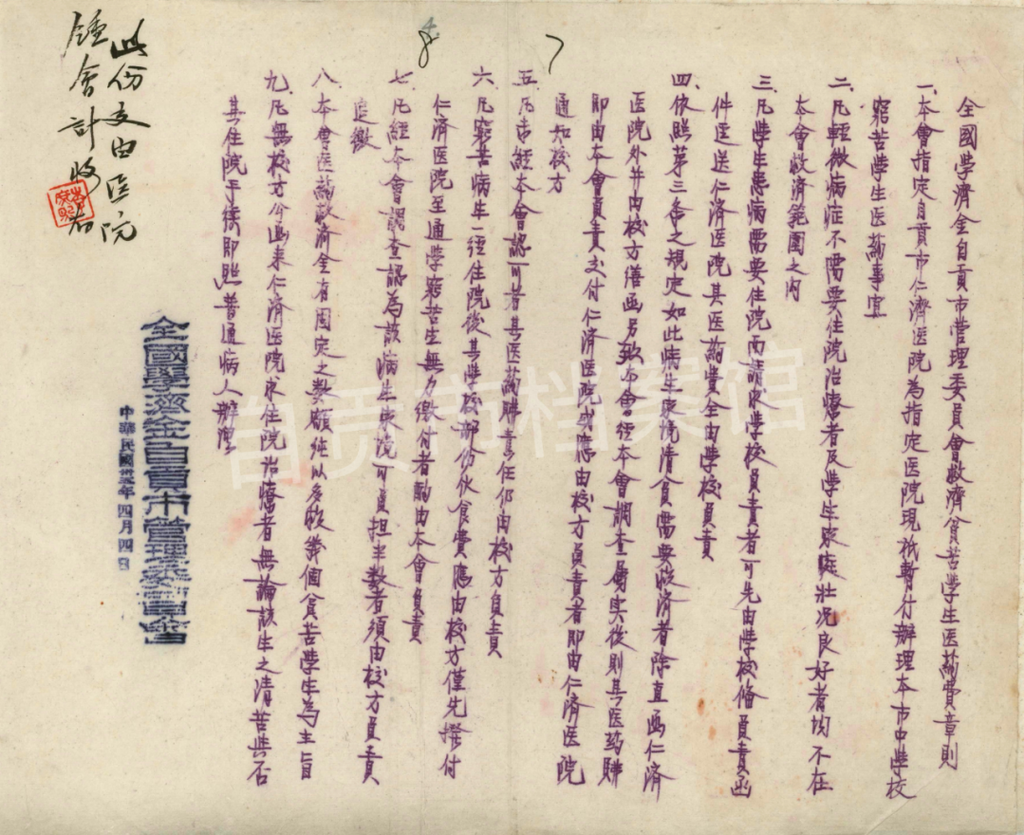 全國學濟金自貢市管理委員會救濟貧苦學生医藥費章則
一、本會指定自貢市仁濟医院為指定医院現祇暫行辦理本市中學校
窮苦學生医藥事宜
二、凡輕微病症不需要住院治療者及學生家庭壯况良好者均不在
本會救濟範圍之内
三、凡學生患病需要住院而請求學校負責者可先由學校備負責函
件送送仁濟医院其医藥費全由學校負責
四、依照第三條之規定如此病生家境清貧需要救濟者除直函仁濟
医院外并由校方繕函另致本會經本會調查屬实後則其医药賬
即由本會負責交付仁濟医院或應由校方負責者即由仁濟医院
通知校方
五、凡未經本會認可者其医药賬責任仍由校方負責
六、凡窮苦病生一經住院後其學校部份伙食費應由校方僅先撥付
仁濟医院至通學窮苦生無力缴付者酌由本會負責
七、凡經本會調查認為該病生家境可負担半數者須由校方負責
追缴
八、本會医药救濟金有固定之数額純以多救幾個貧苦學生為主旨
九、凡無校方公函来仁濟医院求住院治療者無論該生之清苦與否
其住院手續即照普通病人辦理
全國學濟金自貢市管理委員會
中華民國卅五年四月四日
此份交由医院
鍾會計收存
7
8
自贡市档案馆